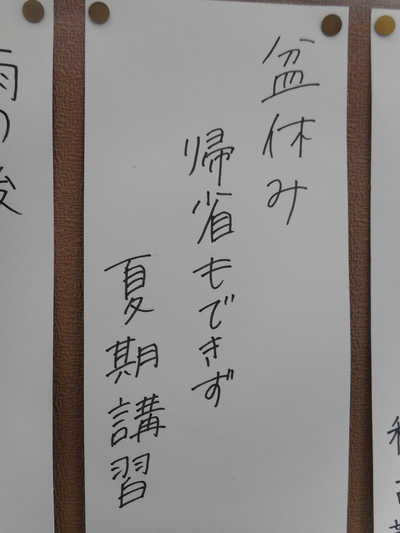 盆休み
帰省もできず
夏期講習
雨の後